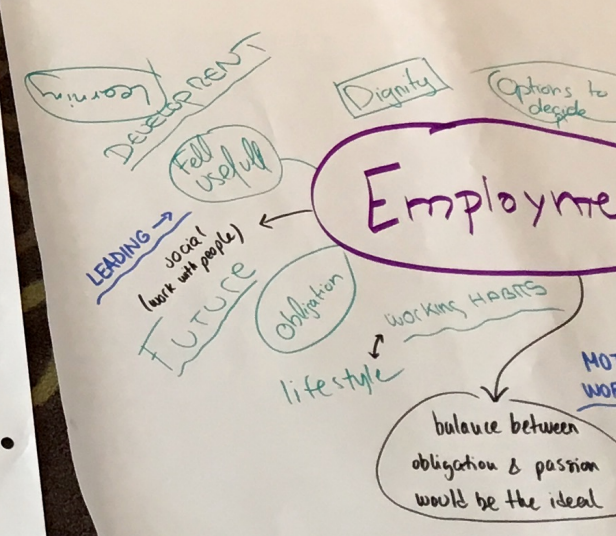 Learning
DEVELOPMENT
Dignity
Options to
decide
Fell
usefull
Employme
LEADING →
social
(work with people)
FUTURE
obligation
WORKING HABITS
lifestyle
MOT
WOR
balance between
obligation & passion
would be the ideal